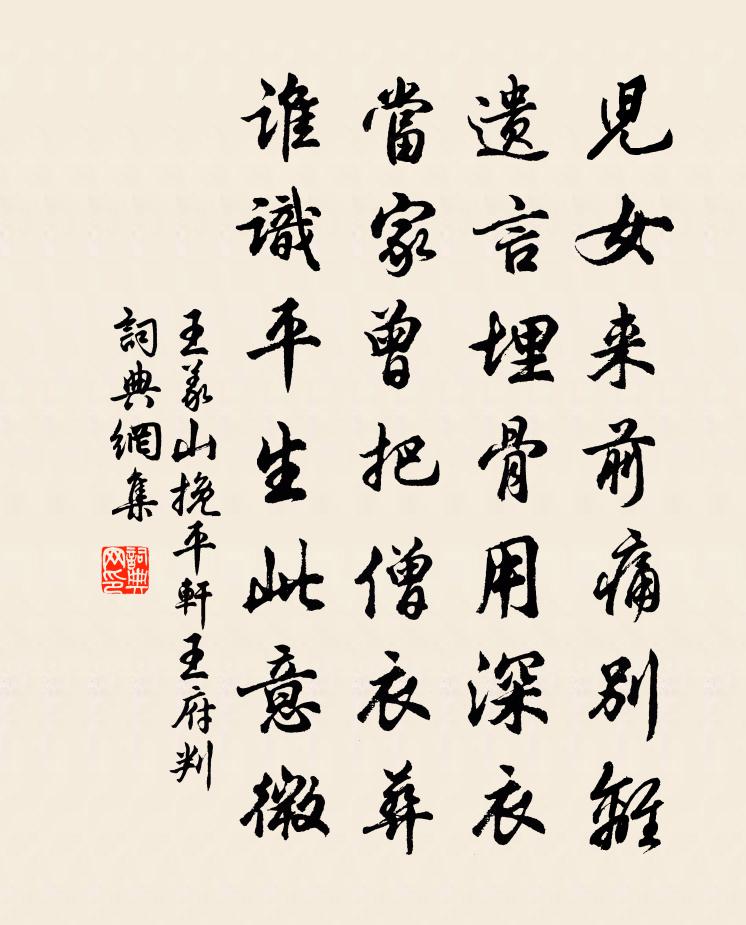 兒女来前痛別離
遺言埋骨用深衣
當家曾把僧衣葬
誰識平生此意微
王義山挽平軒王府判
詞典網集
詞典網印